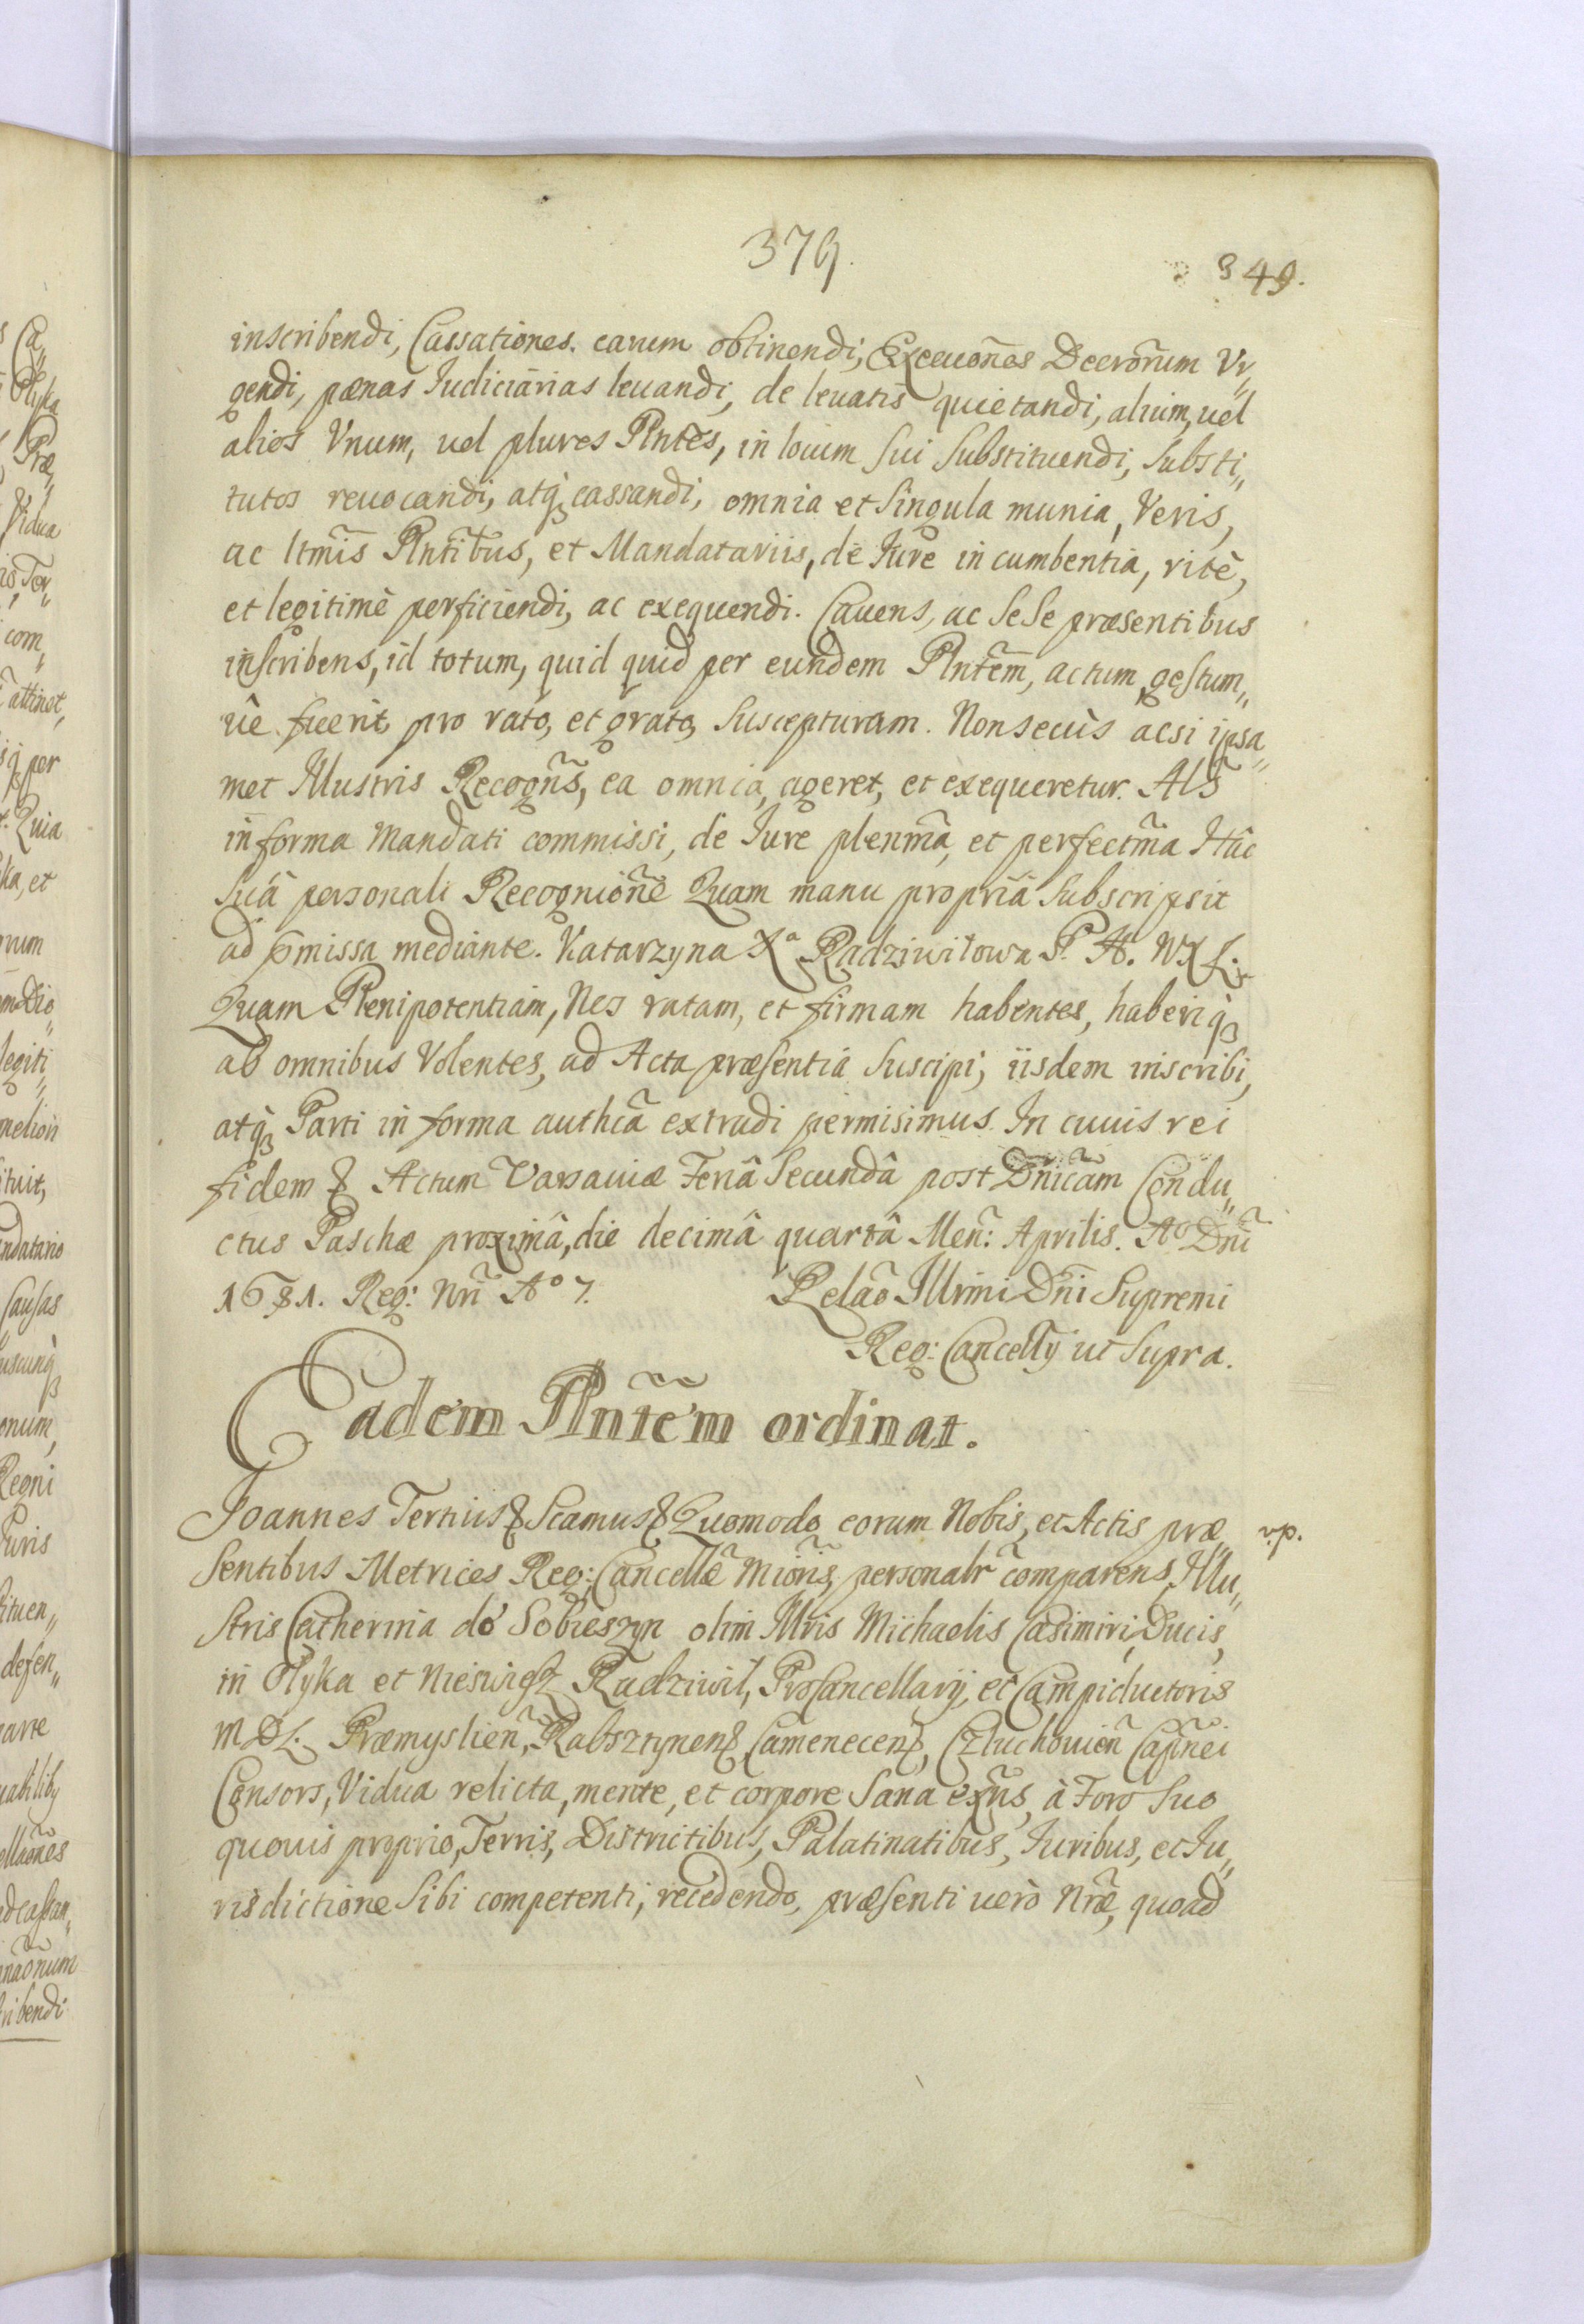 379.
349.
inscribendi, Cassationes. earum obtinendi, Execuoñes Decror̃um Vr„
gendi, pœnas Judiciarias leuandi, de leuatis quietandi, alium, uel
alios Vnum, uel plures Plntẽs, in locum Sui Substituendi, Substi„
tutos reuocandi, atq̨ cassandi, omnia et Singula munia, Veris,
ac ltm̃is Plntĩbus, et Mandatariis, de Jure incumbentia, ritè,
et legitimè perficiendi, ac exequendi. Cauens, ac SeSe præsentibus
inscribens, id totum, quid quid per eundem Plntẽm, actum gestum„
ùe fuerit, pro rato, et grato, Suscepturam. Non secùs acsi ipsa„
met Illustris Recogñs, ea omnia, ageret, et exequeretur. Als̃
in forma Mandati commissi, de Jure plenm̃a, et perfectm̃a Hâc
Suâ personali Recognioñe Quam manu propriâ Subscripsit
ad p̃missa mediante. Katarzyna Xª Radziwiłowa P. H. WXL.
Quam Plenipotentiam, Nos ratam, et firmam habentes, haberiq̨
ab omnibus Volentes, ad Acta præsentia Suscipi, iisdem inscribi,
atq̨ Parti in forma authcã extradi permisimus. In cuius rei
fidem & Actum Varsauiæ Feriâ Secundâ post Dnic̃am Condu„
ctus Paschæ proximâ, die decimâ quartâ Meñ: Aprilis. Aº Dnĩ
1681. Reg: Nrĩ Aº 7.
Relãо Illrmi Dnĩ Supremi
Reg: Cancellȳ ut Supra.
Eadem Plntẽm ordinat.
Joannes Tertius & Scamus & Quomodo coram Nobis, et Actis præ„
v.p.
Sentibus Metrices Reg: Cancellæ̃ Miorĩs, personalr̃ comparens Illu„
Stris Catherina de Sobieszyn olim Illris Michaelis Casimiri, Ducis,
in Ołyka et Nieswiesz Radziwił, ProCancellarij, et Campiductoris
MDL. Præmyslieñ, Rabsztynen&, Camenecen&, Człuchouieñ Capñei
Consors, Vidua relicta, mente, et corpore Sana exñs, à Foro Suo
quouis proprio, Terris, Districtibus, Palatinatibus, Juribus, et Ju„
risdictione Sibi competenti, recedendo, præsenti uerò Nræ̃, quoad